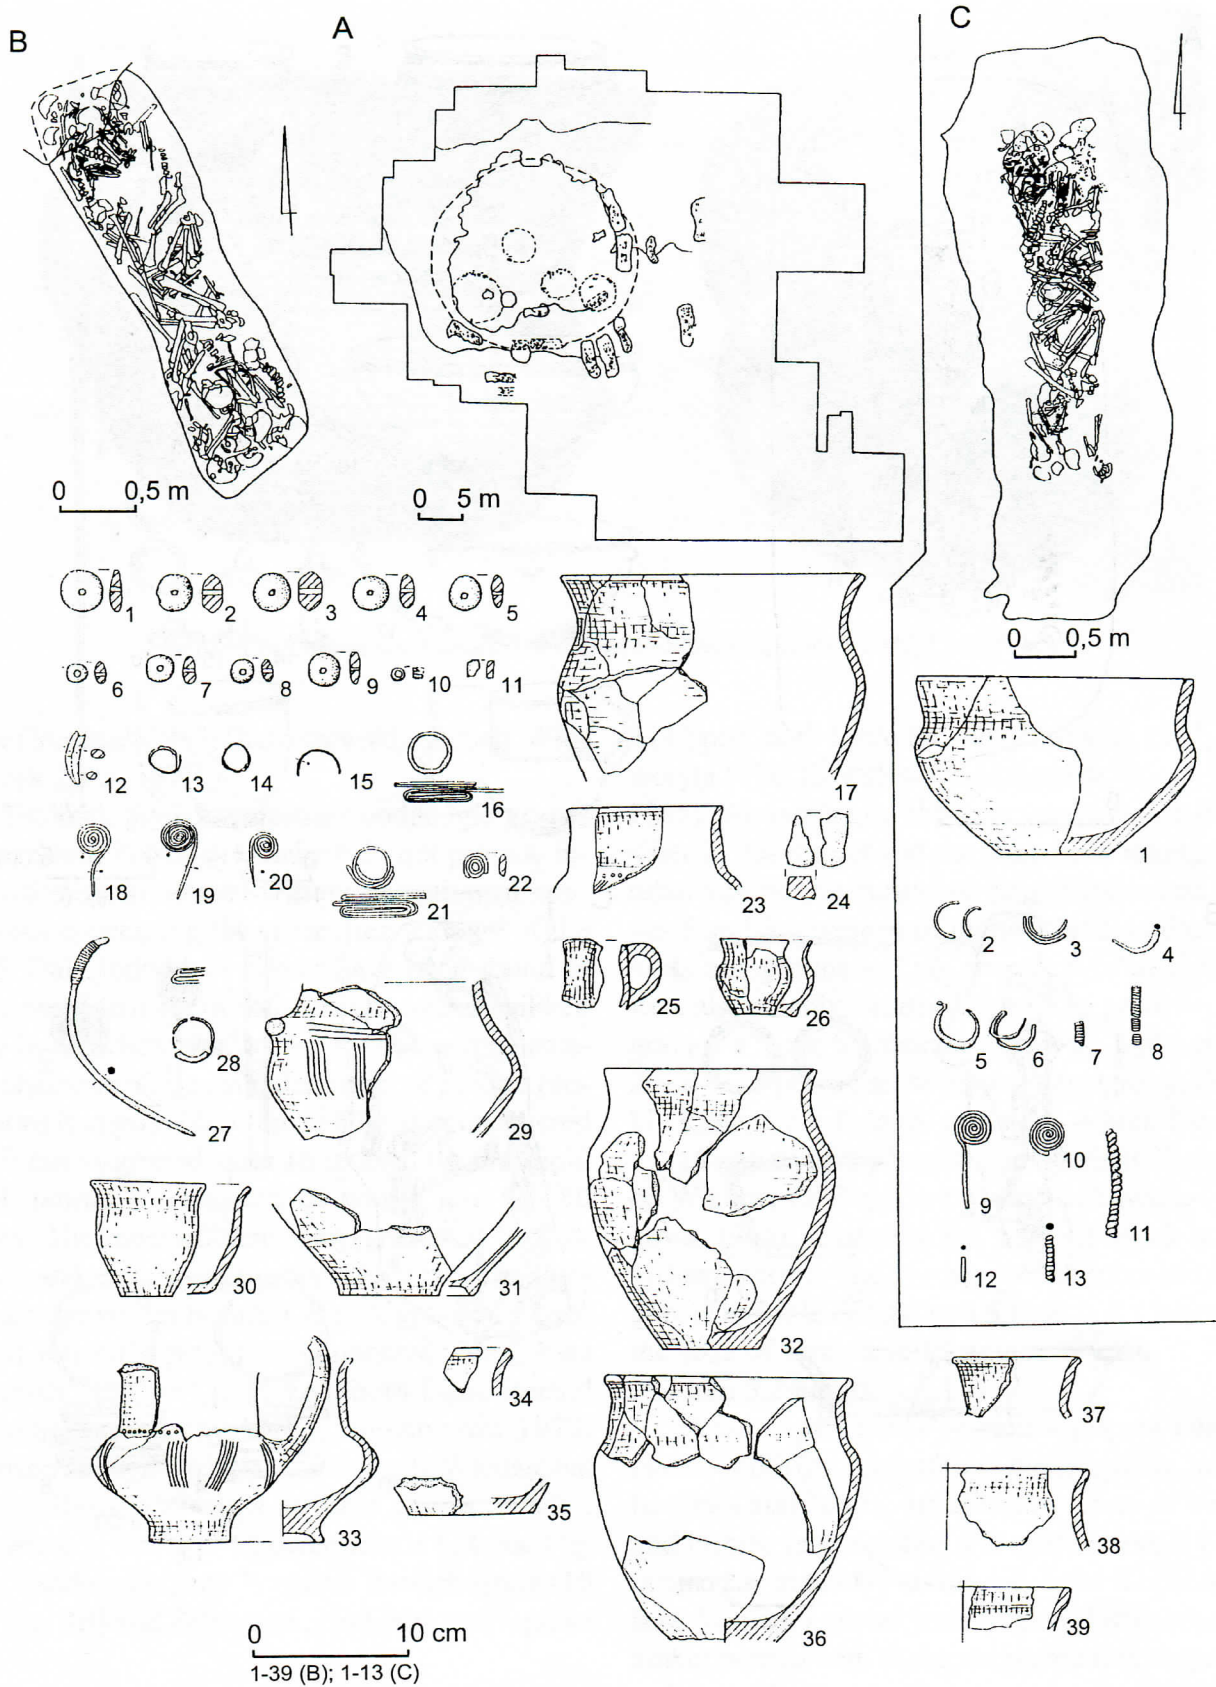 B
A
C
0 0,5 m
0 5 m
0 0,5 m
1 2 3 4 5
6 7 8 9 10 11
12 13 14 15 16 17
18 19 20 21 22 23 24
25 26
27 28 29
30 31 32
33 34 35 36
37
38
39
1
2 3 4
5 6 7 8
9 10 11
12 13
0 10 cm
1-39 (B); 1-13 (C)